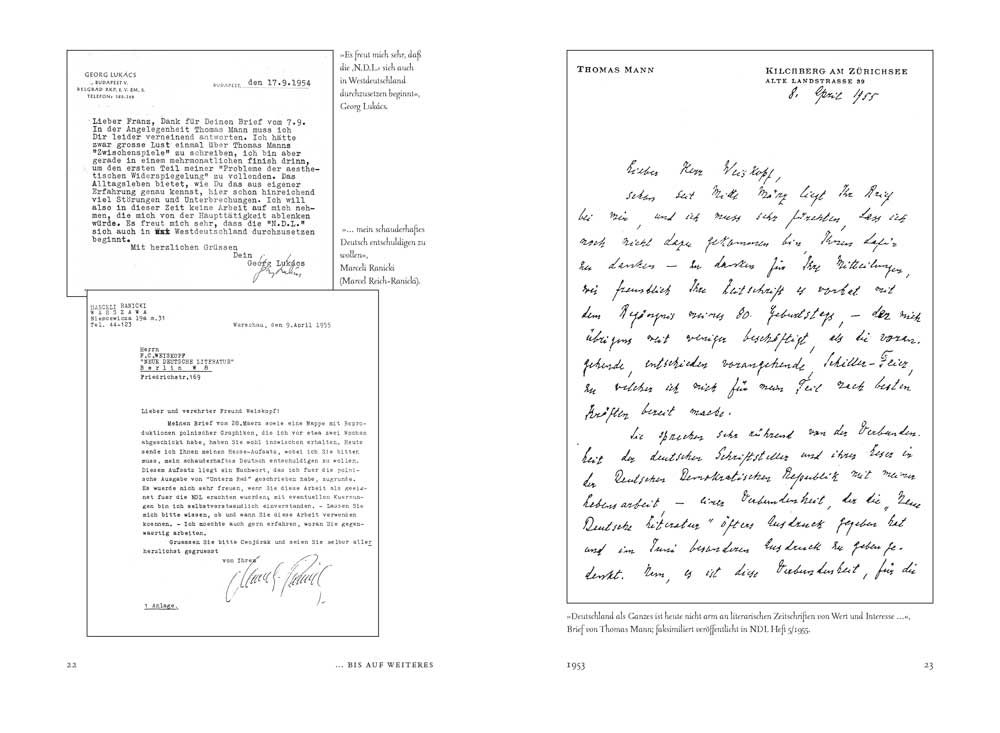 GEORG LUKÁCS
BUDAPEST V.
BELGRAD RKP. 2. V. EM. 5.
TELEFON: 185-366
BUDAPEST, den 17.9.1954
Lieber Franz, Dank für Deinen Brief vom 7.9.
In der Angelegenheit Thomas Mann muss ich
Dir leider verneinend antworten. Ich hätte
zwar grosse Lust einmal über Thomas Manns
"Zwischenspiele" zu schreiben, ich bin aber
gerade in einem mehrmonatlichen finish drinn,
um den ersten Teil meiner "Probleme der aesthe-
tischen Widerspiegelung" zu vollenden. Das
Alltagsleben bietet, wie Du das aus eigener
Erfahrung genau kennst, hier schon hinreichend
viel Störungen und Unterbrechungen. Ich will
also in dieser Zeit keine Arbeit auf mich neh-
men, die mich von der Haupttätigkeit ablenken
würde. Es freut mich sehr, dass die "N.D.L."
sich auch in Westdeutschland durchzusetzen
beginnt.
Mit herzlichen Grüssen
Dein
Georg Lukács
»Es freut mich sehr, daß
die ‚N.D.L.‘ sich auch
in Westdeutschland
durchzusetzen beginnt«,
Georg Lukács.
»... mein schauderhaftes
Deutsch entschuldigen zu
wollen«,
Marceli Ranicki
(Marcel Reich-Ranicki).
MARCELI RANICKI
W A R S Z A W A
Niemcewicza 19a m.31
Tel. 44-123
Warschau, den 9.April 1955
Herrn
F.C.WEISKOPF
"NEUE DEUTSCHE LITERATUR"
B e r l i n W 8
Friedrichstr.169
Lieber und verehrter Freund Weiskopf!
Meinen Brief vom 28.Maerz sowie eine Mappe mit Repro-
duktionen polnischer Graphiken, die ich vor etwa zwei Wochen
abgeschickt habe, haben Sie wohl inzwischen erhalten. Heute
sende ich Ihnen meinen Hesse-Aufsatz, wobei ich Sie bitten
muss, mein schauderhaftes Deutsch entschuldigen zu wollen.
Diesem Aufsatz liegt ein Nachwort, das ich fuer die polni-
sche Ausgabe von "Unterm Rad" geschrieben habe, zugrunde.
Es wuerde mich sehr freuen, wenn Sie diese Arbeit als geeig-
net fuer die NDL erachten wuerden; mit eventuellen Kuerzun-
gen bin ich selbstverstaendlich einverstanden. - Lassen Sie
mich bitte wissen, ob und wann Sie diese Arbeit verwenden
koennen. - Ich moechte auch gern erfahren, woran Sie gegen-
waertig arbeiten.
Gruessen Sie bitte und seien Sie selber aller
herzlichst gegruesst
von Ihrem
1 Anlage.
22
... BIS AUF WEITERES
THOMAS MANN
KILCHBERG AM ZÜRICHSEE
ALTE LANDSTRASSE 39
8. April 1955
Lieber Herr Weiskopf,
schon seit Mitte März liegt Ihr Brief
bei mir, und ich muss sehr fürchten, dass ich
noch nicht dazu gekommen bin, Ihnen dafür
zu danken – zu danken für Ihre Mitteilungen,
wie freundlich Ihre Zeitschrift es vorhat mit
dem Begängnis meines 80. Geburtstags, – der mich
übrigens weit weniger beschäftigt, als die voran-
gehende, entschieden vorangehende, Schiller-Feier,
zu welcher ich mich für mein Teil nach besten
Kräften bereit mache.
Sie sprechen sehr rührend von der Verbunden-
heit der deutschen Schriftsteller und ihrer Leser in
der Deutschen Demokratischen Republik mit meiner
Lebensarbeit – einer Verbundenheit, der die „Neue
Deutsche Literatur" öfters Ausdruck gegeben hat
und im Juni besonderen Ausdruck zu geben ge-
denkt. Nun, es ist diese Verbundenheit, für die
»Deutschland als Ganzes ist heute nicht arm an literarischen Zeitschriften von Wert und Interesse ...«,
Brief von Thomas Mann; faksimiliert veröffentlicht in NDL Heft 5/1955.
1953
23